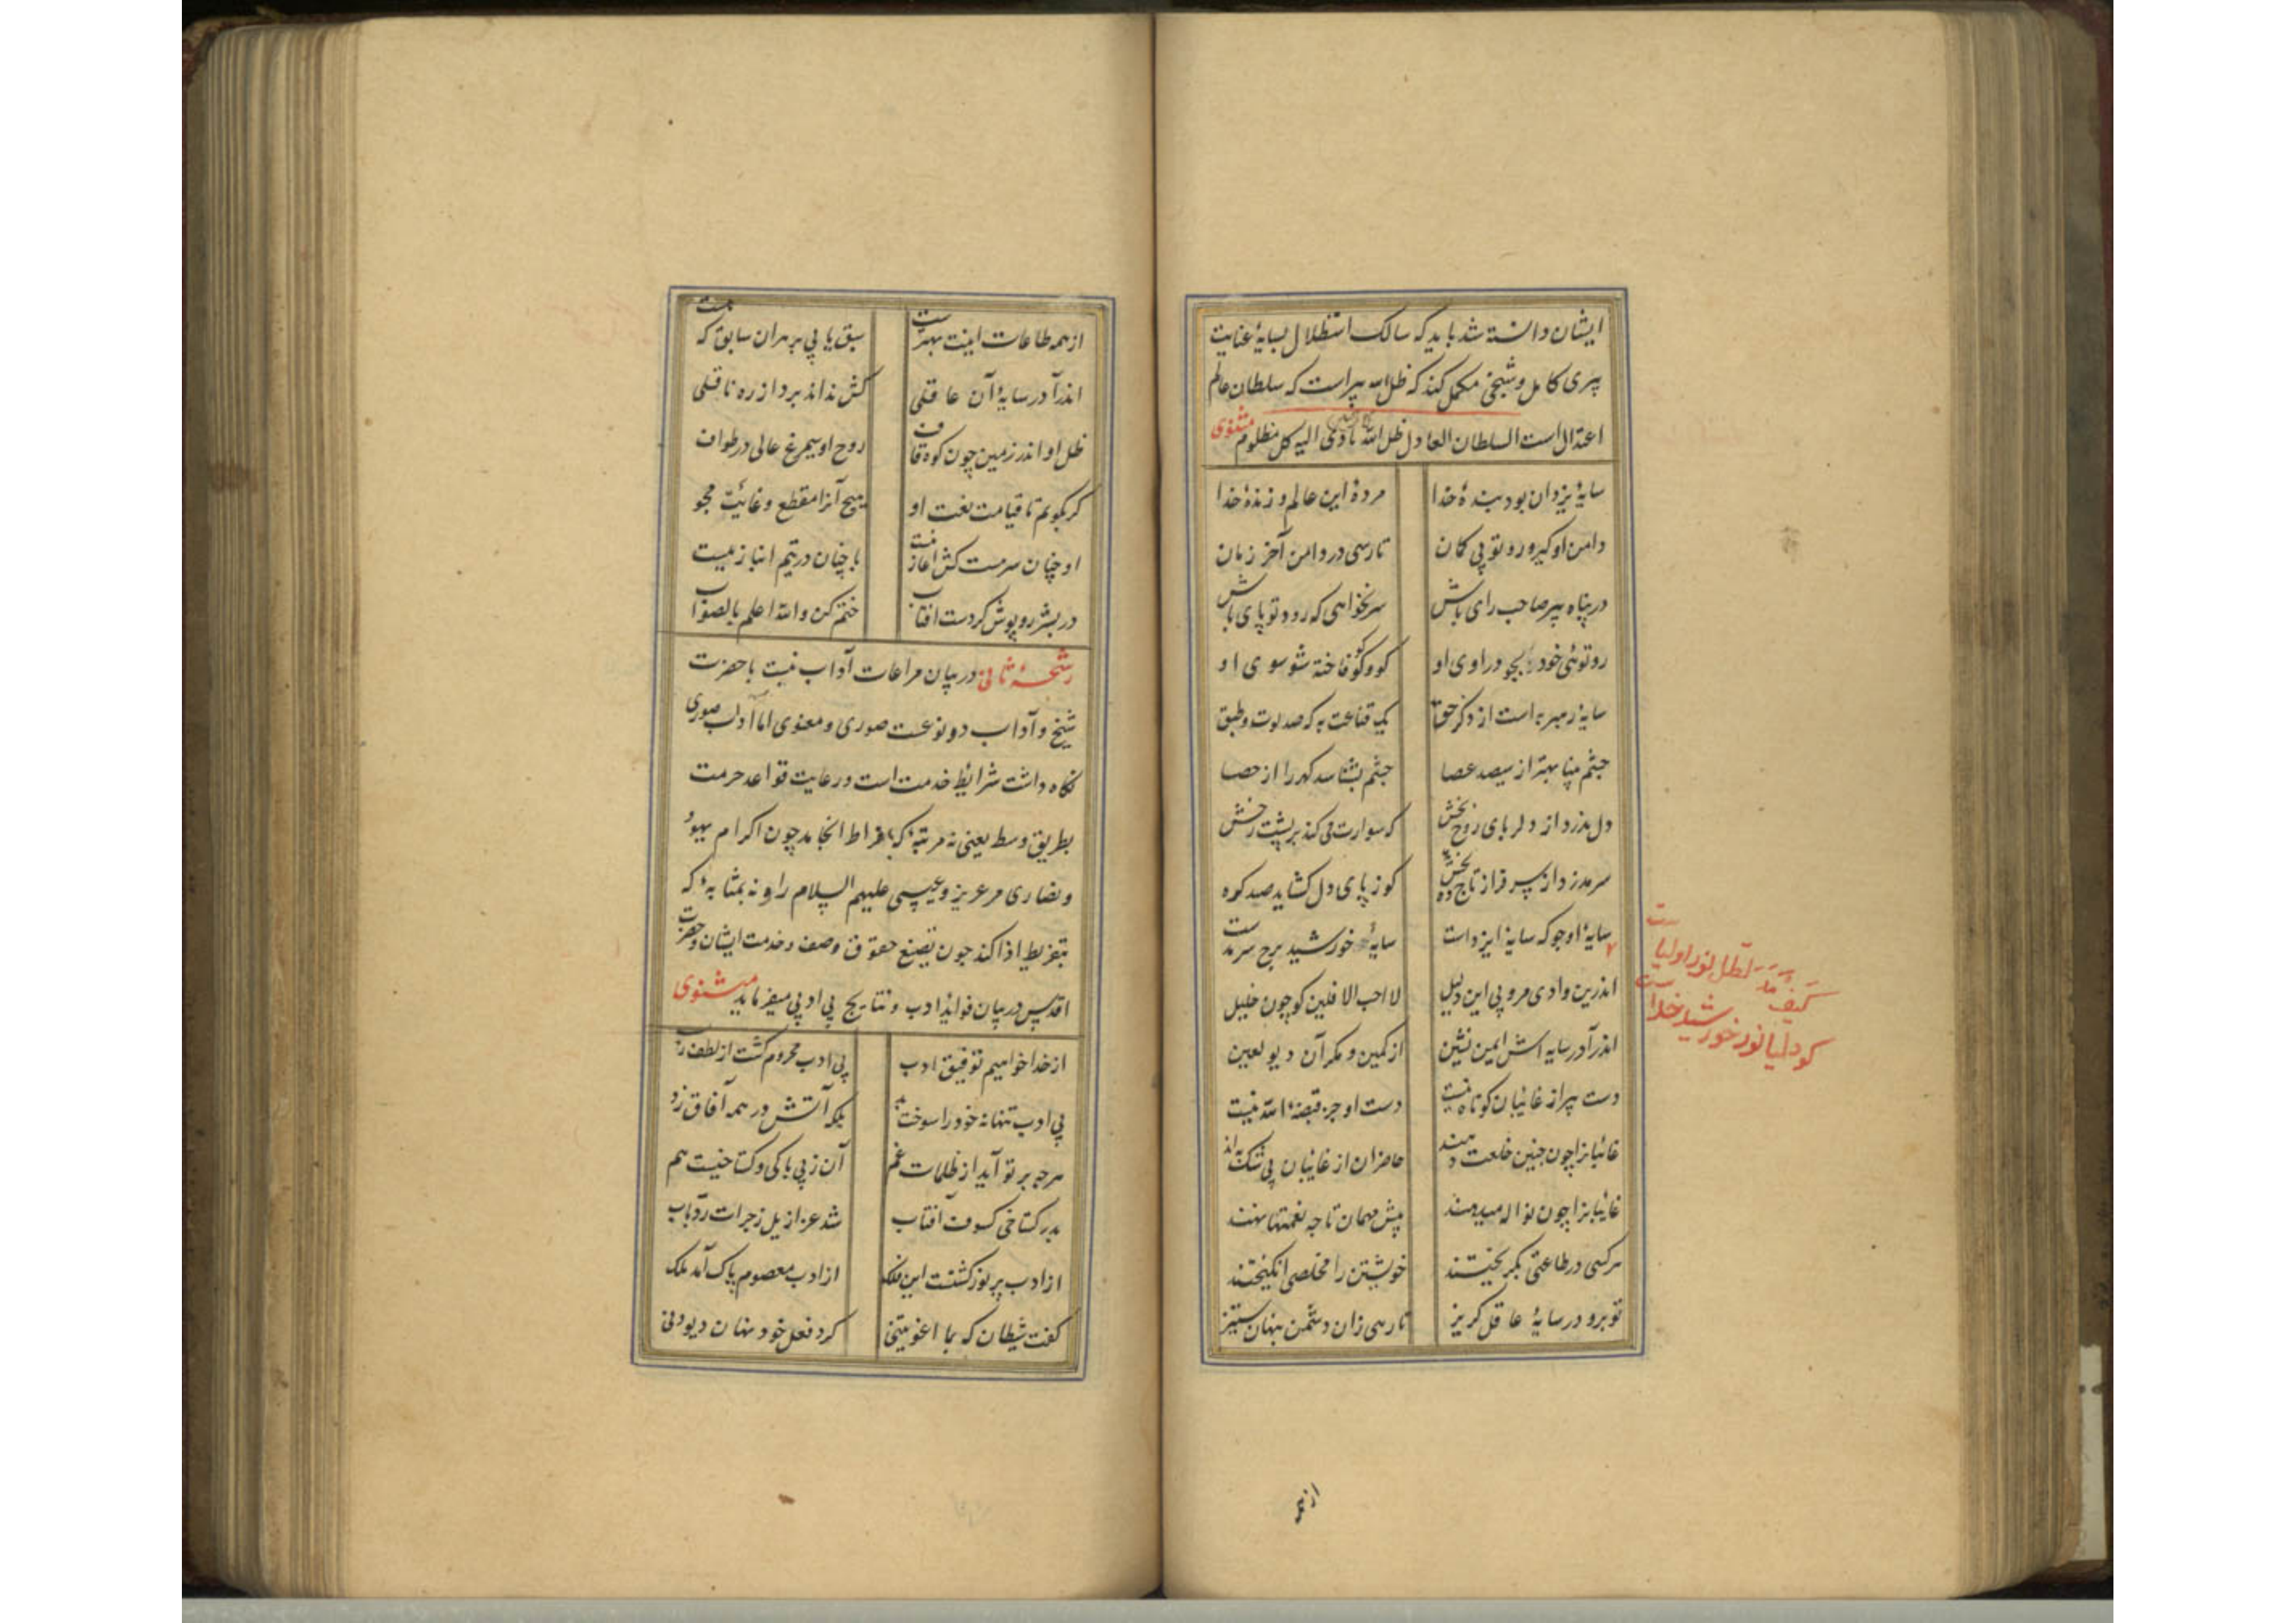 ایشان دانسته شد باید که سالک استظلال بسایهٔ عنایت
پیری کامل و شیخی مکمل کند که ظل الله پیر است که سلطان عالم
اعتدال است السلطان العادل ظل الله یاوی الیه کل مظلوم مثنوی
سایهٔ یزدان بود بندهٔ خدا مردهٔ این عالم و زندهٔ خدا
دامن او کیر و رو تو بی کمان تا رسی در دامن آخر زمان
در پناه پیر صاحب رای باش سر نخواهی که رود تو پای باش
رو توئی خود بجو در اوی او کو و کو کو فاخته شو سوی او
سایهٔ رهبر به است از ذکر حق یک قناعت به که صد لوت و طبق
چشم بینا بهتر از سیصد عصا چشم بشناسد کهر را از حصا
دل مدزد از دلربای روح بخش که سوارت می کند بر پشت رخش
سر مدزد از سر فراز تاج ده کو ز پای دل کشاید صد کره
سایهٔ او جو که سایهٔ ایزد است سایهٔ خورشید برج سرمد ست
اندرین وادی مرو بی این دلیل لا احب الافلین کو چون خلیل
اندر آ در سایه اش ایمن نشین از کمین و مکر آن دیو لعین
دست پیر از غائبان کوتاه نیست دست او جز قبضهٔ الله نیست
غائبانرا چون چنین خلعت دهند حاضران از غائبان بی شک به اند
غایبانرا چون نواله میدهند پیش مهمان تا چه نعمتها نهند
هر کسی در طاعتی بکریختند خویشتن را مخلصی انکیختند
تو برو در سایهٔ عاقل کریز تا رهی زان دشمن پنهان ستیز
کیف مد الظل نور اولیا ست
کو دلیل نور خورشید خداست
از همه
از همه طاعات اینت بهتر ست سبق یابی بر هران سابق که هست
اندر آ در سایهٔ آن عاقلی کش نداند برد از ره ناقلی
ظل او اندر زمین چون کوه قاف روح او سیمرغ عالی در طواف
کر بکویم تا قیامت نعت او هیچ آنرا مقطع و غایت مجو
او چنان سرمست کش اغاز نیست با چنان در یتیم انباز نیست
در بشر روپوش کردست افتاب ختم کن والله اعلم بالصواب
رشحهٔ ثانی در بیان مراعات آداب نسبت با حضرت
شیخ و آداب دو نوعست صوری و معنوی اما آداب صوری
نکاه داشت شرایط خدمت است و رعایت قواعد حرمت
بطریق وسط یعنی نه مرتبهٔ که بافراط انجامد چون اکرام یهود
و نصاری مر عزیر و عیسی علیهم السلام را و نه بمثابهٔ که
بتفریط ادا کند چون تضیع حقوق وصف و خدمت ایشان و حضرت
اقدس در بیان فواید ادب و نتایج بی ادبی میفرماید مثنوی
از خدا خواهیم توفیق ادب بی ادب محروم کشت از لطف رب
بی ادب تنها نه خود را سوخت بد بلکه آتش در همه آفاق زد
هر چه بر تو آید از ظلمات غم آن ز بی باکی و کستاخیست هم
بدر کستاخی کسوف آفتاب شد عزازیل ز جرات رد باب
از ادب پر نور کشتست این فلک از ادب معصوم پاک آمد ملک
کفت شیطان که بما اغویتنی کرد فعل خود نهان دیو دنی